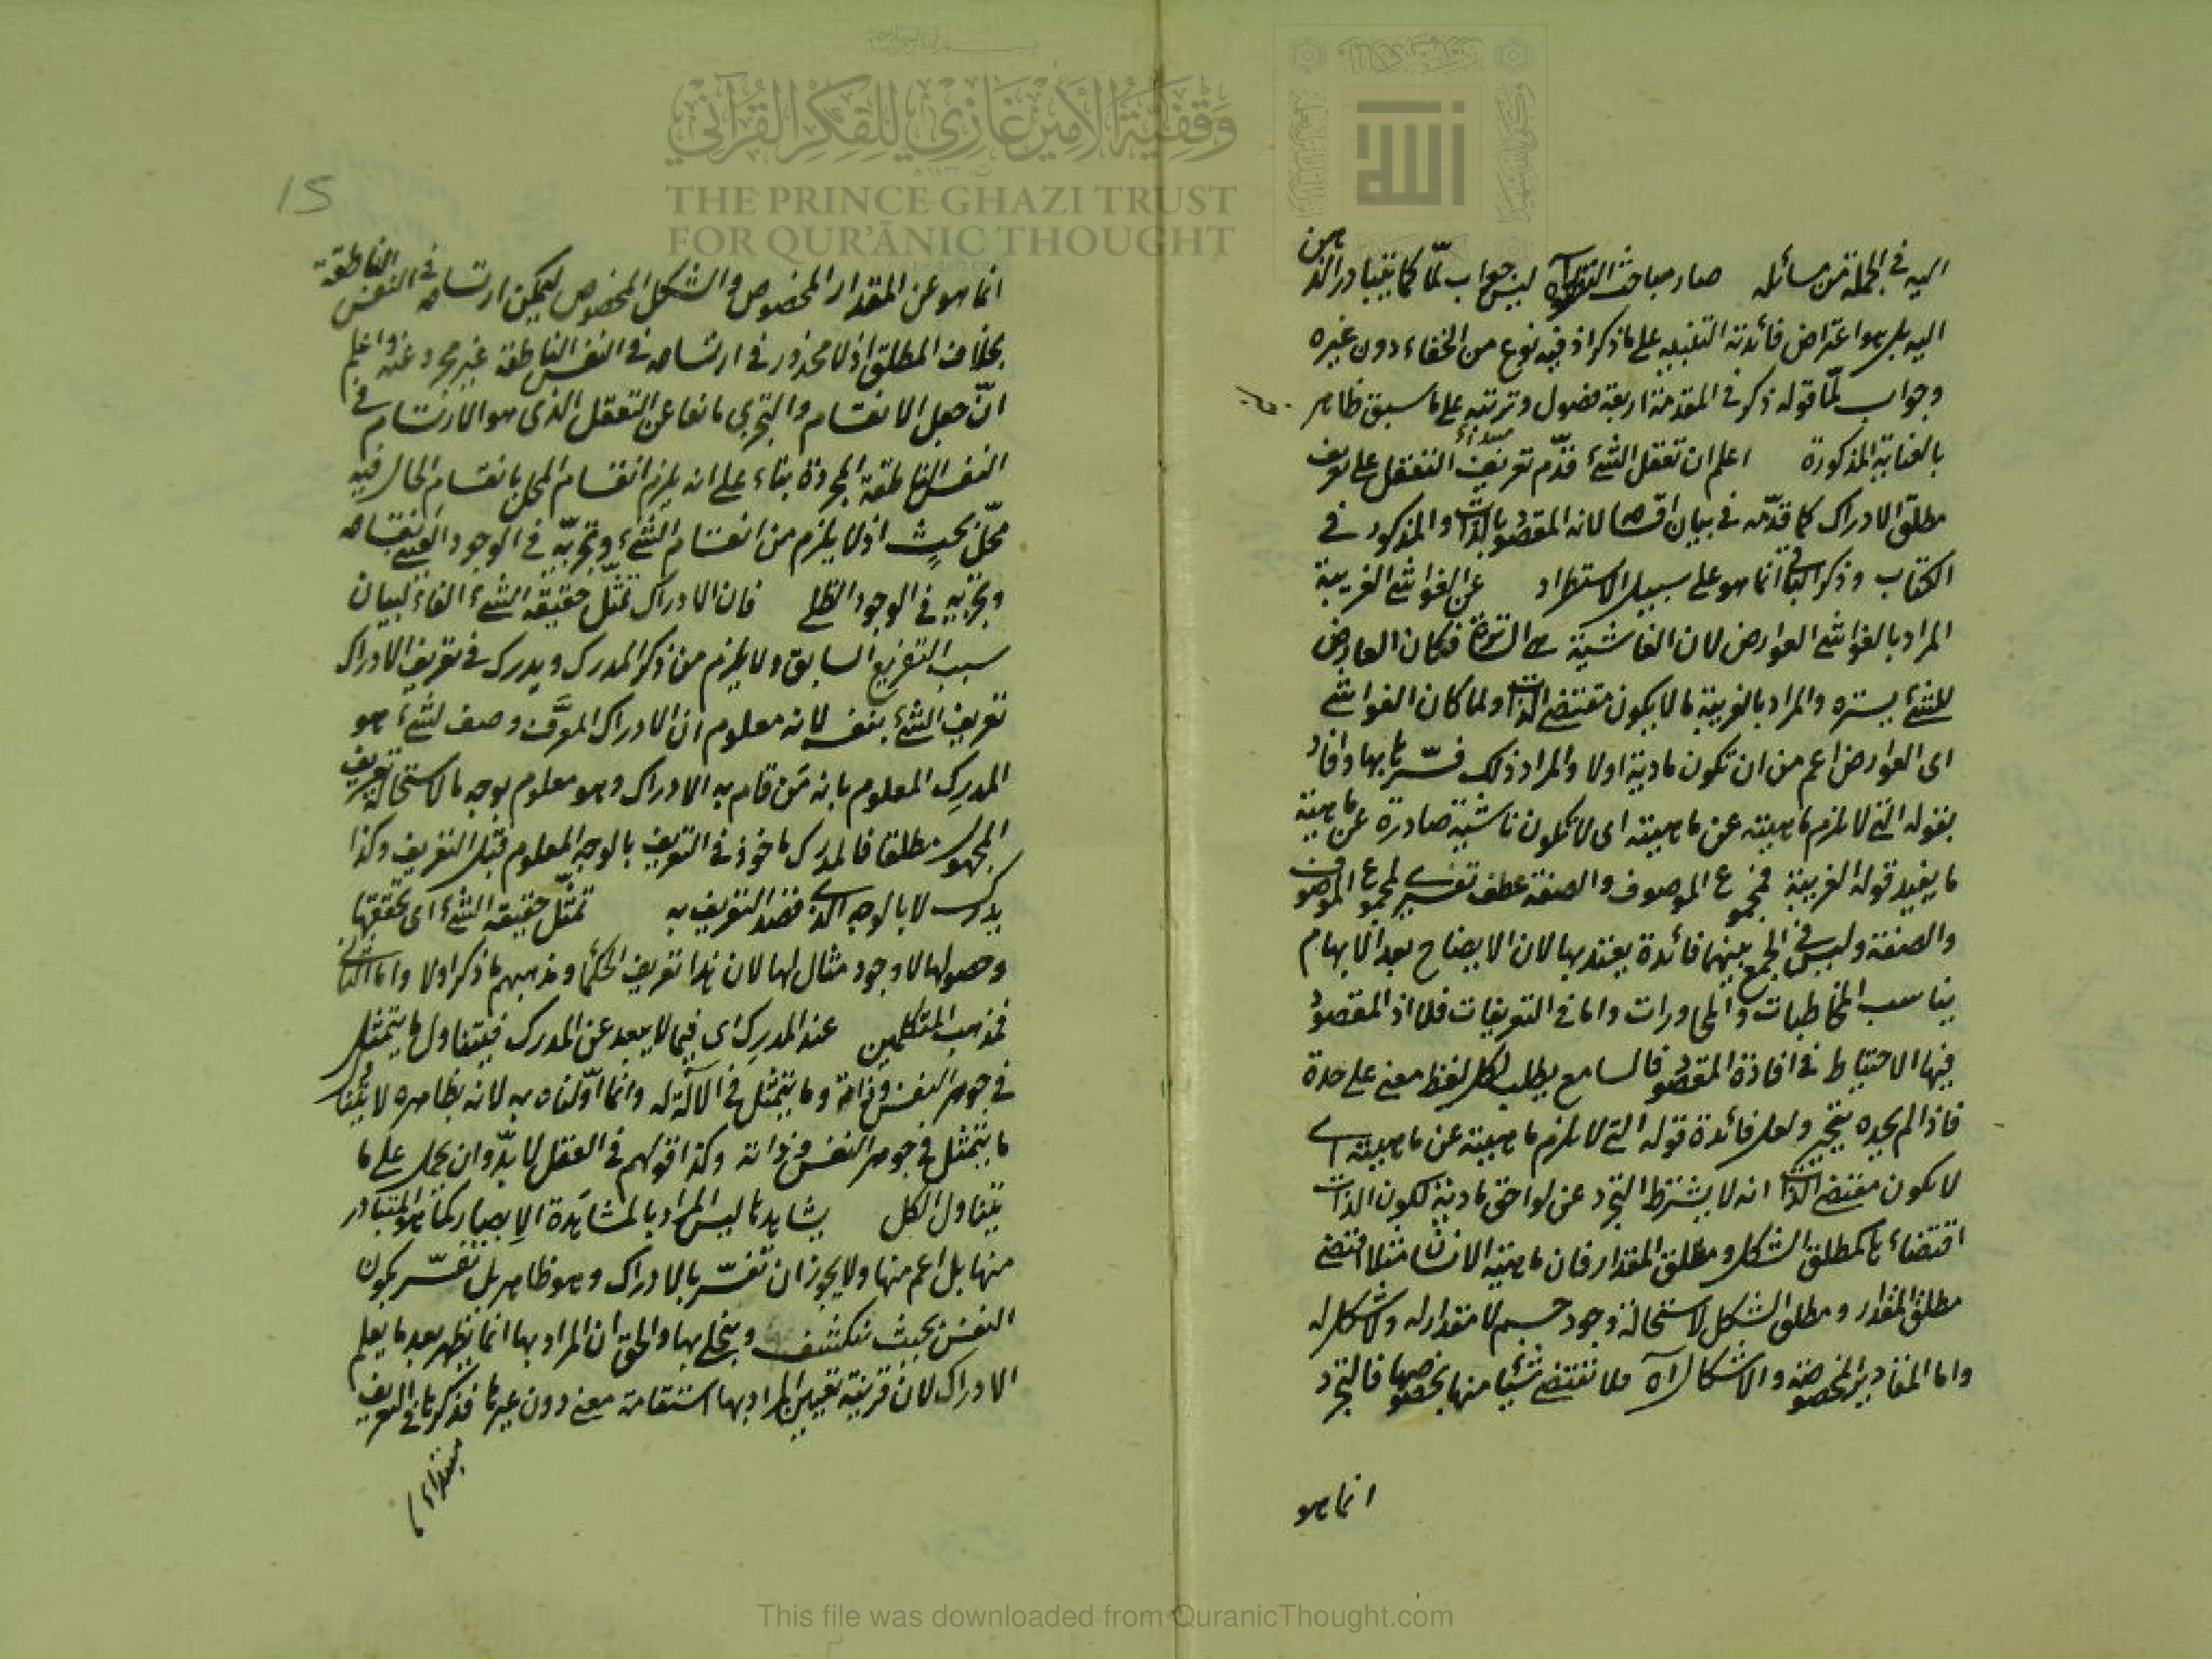 وقفية الأمير غازي للفكر القرآني
THE PRINCE GHAZI TRUST
FOR QUR'ĀNIC THOUGHT
الله
اليه في الجملة من مسائله صار مباحث ليس جواب لمّا كما يتبادر الذهن
اليه بل هو اعتراض فائدته التنبيه على ما ذكر اذ فيه نوع من الخفاء دون غيره
وجواب لمّا قوله ذكر في المقدمة اربعة فصول وترتبه على ما سبق ظاهر
بالعناية المذكورة اعلم ان تعقل الشئ قدّم تعريف التعقل على تعريف
مطلق الادراك كما قدّمه في بيان اقسامه لانه المقصود بالذات والمذكور في
الكتاب وذكر الباقى انما هو على سبيل الاستطراد عن الغواشى الغريبة
المراد بالغواشى العوارض لان الغاشية هى الساترة فكان العارض
للشئ يستره والمراد بالغريبة ما لا يكون مقتضى الذات ولما كان الغواشى
اى العوارض اعم من ان تكون مادية اولا والمراد ذلك فسّرها بها وافاد
بقوله التى لا يلزم ماهيته عن ماهيته اى لا تكون ناشية صادرة عن ماهية
ما يفيد قوله الغريبة فمجموع الموصوف والصفة عطف تفسير لمجموع الموصوف
والصفة وليس فى الجمع بينهما فائدة يعتد بها لان الايضاح بعد الابهام
يناسب المخاطبات والمحاورات واما فى التعريفات فلا اذ المقصود
فيها الاحتياط فى افادة المقصود فالسامع يطلب لكل لفظ معنى على حدة
فاذا لم يجده يتحير ولعل فائدة قوله التى لا يلزم ماهيته عن ماهيته اى
لا يكون مقتضى الذات انه لا يشترط التجرد عن لواحق مادية لكون الذات
اقتضاءها كمطلق الشكل ومطلق المقدار فان ماهية الانسان مثلا اقتضى
مطلق المقدار ومطلق الشكل لاستحالة وجود جسم لا مقدار له ولا شكل له
واما المقادير المخصوصة والاشكال اه فلا تقتضى شيئا منها بخصوصها فالتجرد
انما هو
15
انما هو عن المقدار المخصوص والشكل المخصوص ليمكن ارتسامه فى النفس الناطقة
بخلاف المطلق اذ لا محذور فى ارتسامه فى النفس الناطقة غير مجرد عنه واعلم
انّ جعل الانقسام والتجزى مانعا عن التعقل الذى هو الارتسام فى
النفس الناطقة المجردة بناء على انه يلزم انقسام المحل بانقسام الحال فيه
محلّ بحيث اذ لا يلزم من انقسام الشئ وتجزيه فى الوجود العينى انقسامه
وتجزيه فى الوجود الظلى فان الادراك تمثّل حقيقة الشئ الفاء لبيان
سبب التفريع السابق ولا يلزم من ذكر المدرك ويدرك فى تعريف الادراك
تعريف الشئ بنفسه لانه معلوم ان الادراك المعرَّف وصف لشئ هو
المدرِك المعلوم بانه مَن قام به الادراك وهو معلوم بوجه ما لاستحالة تعريف
المجهول مطلقا فالمدرك ماخوذ فى التعريف بالوجه المعلوم قبل التعريف وكذا
يدرك لا بالوجه الذى قصد التعريف به تمثّل حقيقة الشئ اى تحققها
وحصولها لا وجود مثال لها لان هذا تعريف الحكماء ومذهبهم ما ذكر اولا واما الثانى
فمذهب المتكلمين عند المدرِك اى فيما لا يبعد عن المدرك فيتناول ما يتمثل
فى جوهر النفس وذاته وما يتمثل فى الآلة له وانما اوّلناه به لانه بظاهره لا يتناول
ما يتمثل فى جوهر النفس وذاته وكذا قولهم فى العقل لا بدّ وان يحمل على ما
يتناول الكل يشاهدها ليس المراد بالمشاهَدة الابصار كما هو المتبادر
منها بل اعم منها ولا يجوز ان تفسّر بالادراك وهو ظاهر بل تفسّر بكون
النفس بحيث تنكشف وينجلى بها والحق ان المراد بها انما يظهر بعد ما يعلم
الادراك لان قرينة تعيين المراد بها استقامة معنى دون غيرها فذكرها فى التعريف
This file was downloaded from QuranicThought.com